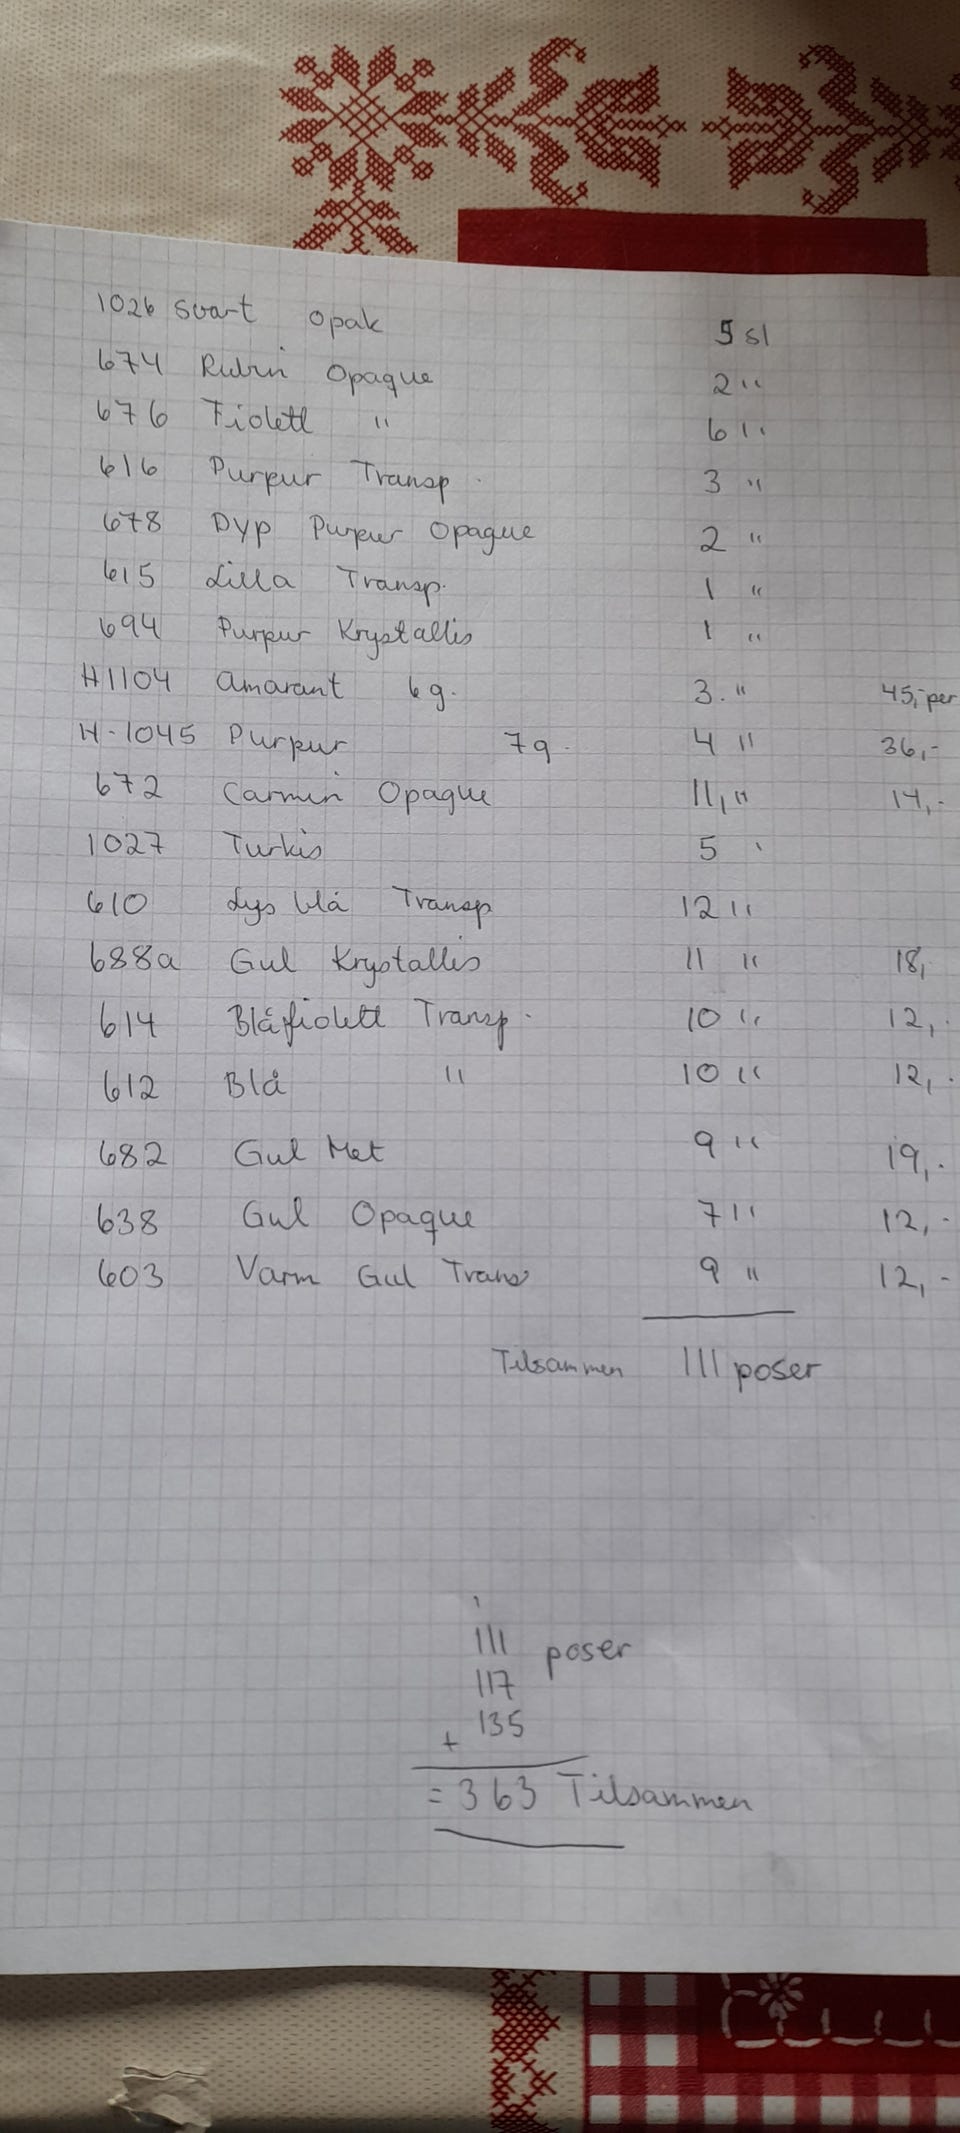 1026 Svart Opak 5 sl
674 Rubin Opaque 2 "
676 Fiolett " 6 "
616 Purpur Transp. 3 "
678 Dyp Purpur Opaque 2 "
615 Lilla Transp. 1 "
694 Purpur Krystallis 1 "
H1104 Amarant 6g. 3. " 45,- per
H-1045 Purpur 7g. 4 " 36,-
672 Carmin Opaque 11, " 14,-
1027 Turkis 5 '
610 Lys blå Transp 12 "
688a Gul Krystallis 11 " 18,
614 Blåfiolett Transp. 10 " 12,-
612 Blå " 10 " 12,-
682 Gul Met 9 " 19,-
638 Gul Opaque 7 " 12,-
603 Varm Gul Trans 9 " 12,-
Tilsammen 111 poser
1
111 poser
117
+ 135
= 363 Tilsammen